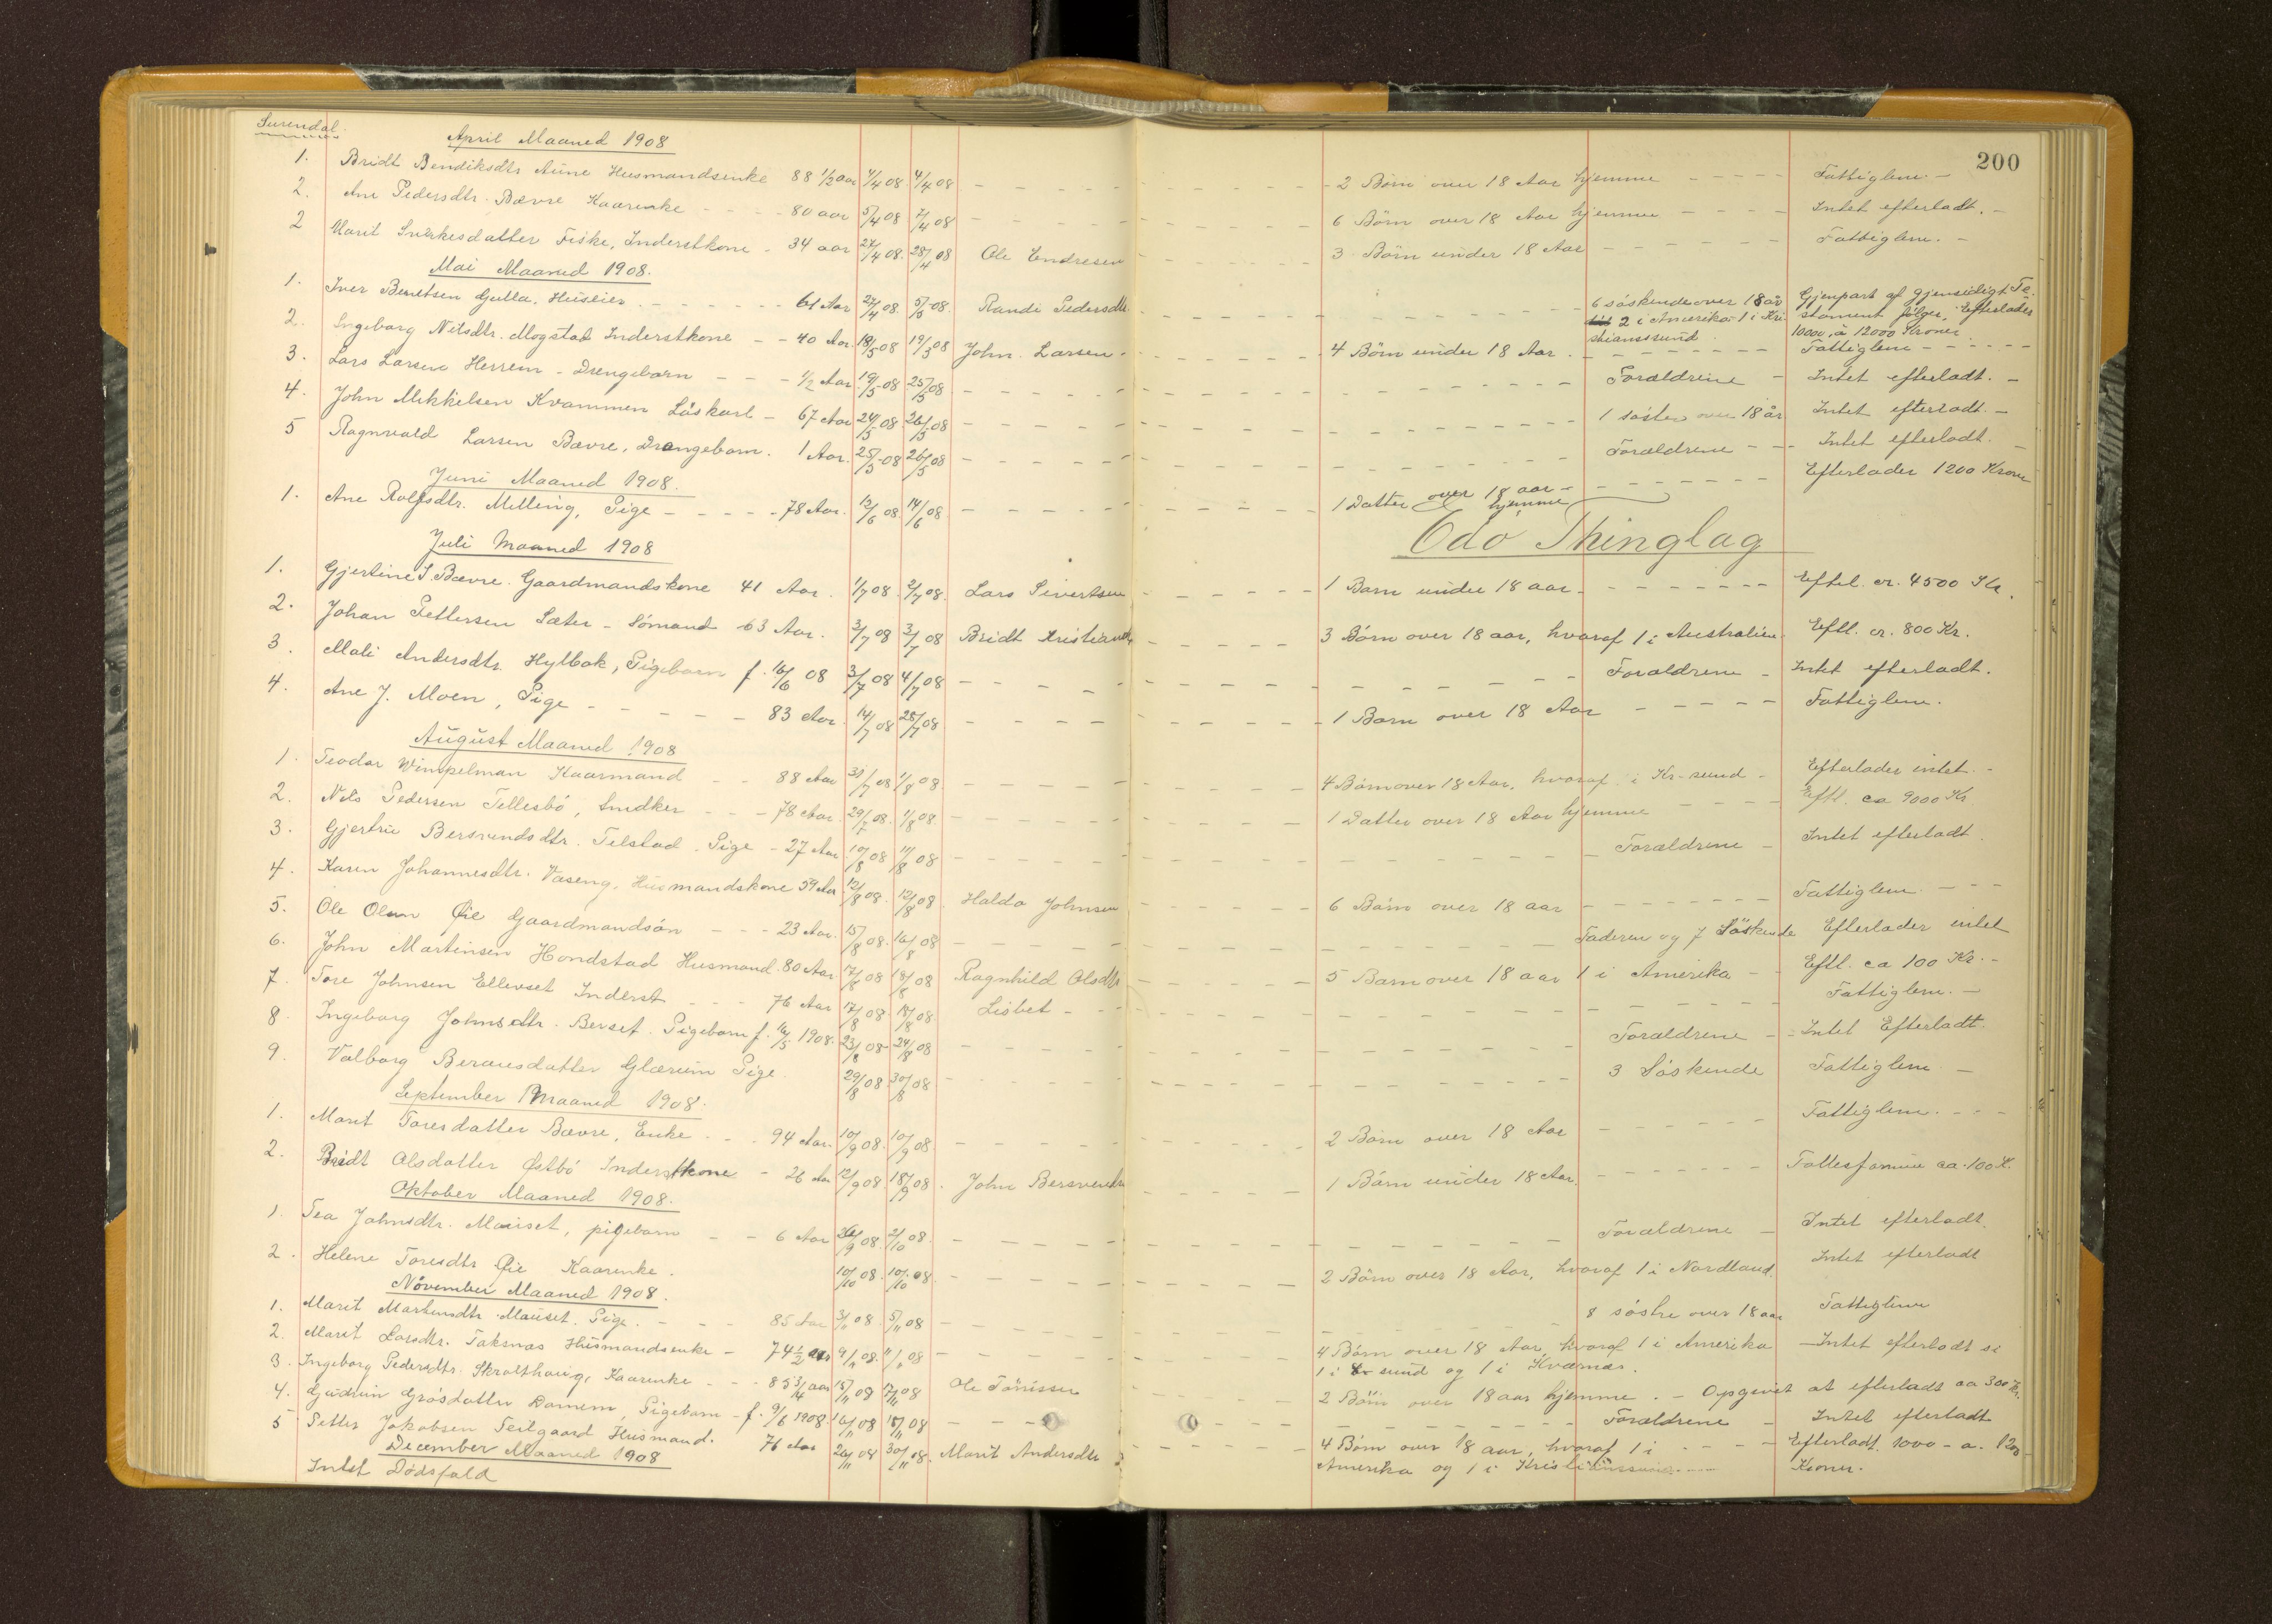 Surendal.
200
April Maaned 1908
1. Bridt Bendiksdtr Aune Husmandsenke 88 1/2 aar 4/4 08. 4/4 08 2 Börn over 18 Aar hjemme Fattiglem.
2. Ane Pedersdtr. Bævre Kaarenke 80 aar 5/4 08 7/4 08 6 Börn over 18 Aar hjemme Intet efterladt.
2 Marit Sivertsdatter Fiske, Inderstkone 34 aar 27/4 08. 28/4 08 Ole Endresen 3 Börn under 18 Aar Fattiglem.
Mai Maaned 1908.
1. Iver Berntsen Gulla. Huseier. 61 Aar 27/4 08. 5/5 08. Randi Pedersdtr 6 söskende over 18 år 2 i Amerika 1 i Kristianssund Gjenpart af gjensidigt Testament följer. Efterlades 10000 à 12000 Kroner
2. Ingeborg Nilsdtr. Mogstad Inderstkone 40 Aar. 18/5 08 19/5 08 John Larsen 4 Börn under 18 Aar. Fattiglem
3. Lars Larsen Herrem - Drengebarn 1/2 Aar. 19/5 08 25/5 08 Forældrene Intet efterladt.
4. John Mikkelsen Kvammen Löskarl 67 Aar 24/5 08 26/5 08 1 söster over 18 år Intet efterladt.
5 Ragnvald Larsen Bævre, Drengebarn. 1 Aar. 25/5 08 26/5 08 Forældrene Intet efterladt.
Juni Maaned 1908.
1. Ane Rolfsdtr. Melling, Pige 78 Aar. 12/6 08. 14/6 08 1 Datter over 18 aar hjemme Efterlader 1200 Kroner
Edö Thinglag
Juli Maaned 1908
1. Gjertine S. Bævre. Gaardmandskone 41 Aar. 1/7 08. 2/7 08. Lars Sivertsen 1 Barn under 18 aar. Eftel. cr. 4500 Kr.
2. Johan Pettersen Sæter - Sömand 63 Aar. 3/7 08 3/7 08 Bridt Kristiansdtr 3 Börn over 18 aar, hvoraf 1 i Australien Eftl. cr. 800 Kr.
3. Mali Andersdtr. Hylbak, Pigebarn f. 16/6 08 3/7 08 4/7 08 Forældrene Intet efterladt.
4. Ane J. Moen, Pige 83 Aar. 14/7 08 28/7 08 1 Barn over 18 Aar Fattiglem.
August Maaned 1908
1. Teodor Wimpelman Kaarmand 88 Aar 31/7 08 1/8 08. 4 Börn over 18 Aar, hvoraf i Kr-sund Efterlader intet.
2. Nils Pedersen Tellesbö, Snedker 78 Aar. 29/7 08. 1/8 08. 1 Datter over 18 Aar hjemme Eftl. ca 9000 Kr
3. Gjertrü Bersvendsdtr. Telstad. Pige 27 Aar. 10/8 08 11/8 08 Forældrene Intet efterladt.
4. Karen Johannesdtr. Vaseng, Husmandskone 59 Aar. 12/8 08. 12/8 08. Haldo Johnsen 6 Börn over 18 aar Fattiglem.
5. Ole Olsen Øie Gaardmandsön 23 Aar. 15/8 08. 16/8 08 Faderen og 7 Söskende Efterlader intet
6. John Martinsen Hondstad Husmand. 80 Aar 17/8 08 18/8 08 Ragnhild Olsdtr 5 Barn over 18 aar 1 i Amerika Eftl. ca 100 Kr.
7. Tore Johnsen Ellevset Inderst 76 Aar 17/8 08. 18/8 08. Lisbet Fattiglem.
8. Ingeborg Johnsdtr. Berset. Pigebarn f. 16/5 1908. 23/8 08 24/8 08 Forældrene Intet Efterladt.
9. Valborg Berausdatter Glærum Pige. 29/8 08 30/8 08 3 Söskende Fattiglem
September Maaned 1908.
1. Marit Toresdatter Bævre, Enke 94 Aar. 10/9 08. 10/9 08. 2 Börn over 18 Aar Fattiglem.
2. Bridt Olsdatter Østbö Inderstkone 26 Aar 12/9 08 18/9 08. John Bersvends 1 Börn under 18 Aar. Fællesformue ca. 100 K.
Oktober Maaned 1908.
1. Tea Johnsdtr. Mauset, pigebarn 6 Aar 26/9 08. 2/10 08. Forældrene Intet efterladt.
2. Helene Toresdtr Øie Kaarenke. 10/10 08. 10/10 08. 2 Börn over 18 Aar, hvoraf 1 i Nordland. Intet efterladt
November Maaned 1908.
1. Marit Martinsdtr. Mauset. Pige. 85 Aar 3/11 08. 5/11 08 8 söstre over 18 aar Fattiglem
2. Marit Larsdtr. Taksnæs Husmandsenke 74 1/2 aar 9/11 08. 11/11 08 4 Börn over 18 Aar, hvoraf 1 i Amerika 1 i Kr sund og 1 i Kvernæs. Intet efterladt
3. Ingeborg Pedersdtr. Skralthaug, Kaarenke 85 3/4 aar 15/11 08 17/11 08 Ole Tönissen 2 Börn over 18 aar hjemme. Opgivet at efterladt ca 300 Kr.
4. Gudrun Grösdatter Dønnem, Pigebarn f. 9/6 1908. 16/11 08 18/11 08 Forældrene Intet efterladt
5 Petter Jakobsen Teilgaard Husmand. 76 Aar 26/11 08 30/11 08. Marit Andersdtr 4 Börn over 18 aar, hvoraf 1 i Amerika og 1 i Efterladt. 1000 - a. 1200 Kroner.
December Maaned 1908
Intet Dödsfald